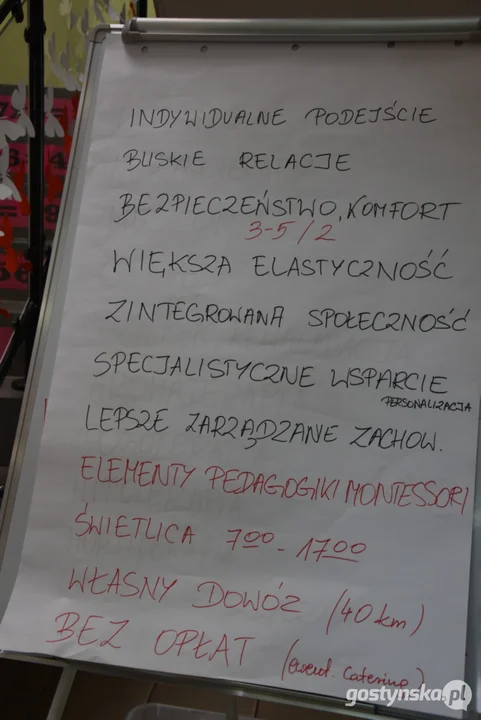 INDYWIDUALNE PODEJŚCIE
BLISKIE RELACJE
BEZPIECZEŃSTWO, KOMFORT
3-5/2
WIĘKSZA ELASTYCZNOŚĆ
ZINTEGROWANA SPOŁECZNOŚĆ
SPECJALISTYCZNE WSPARCIE
PERSONALIZACJA
LEPSZE ZARZĄDZANE ZACHOW.
ELEMENTY PEDAGOGIKI MONTESSORI
ŚWIETLICA 700 - 1700
WŁASNY DOWÓZ (40 km)
BEZ OPŁAT (ewent. Catering)
gostynska.pl